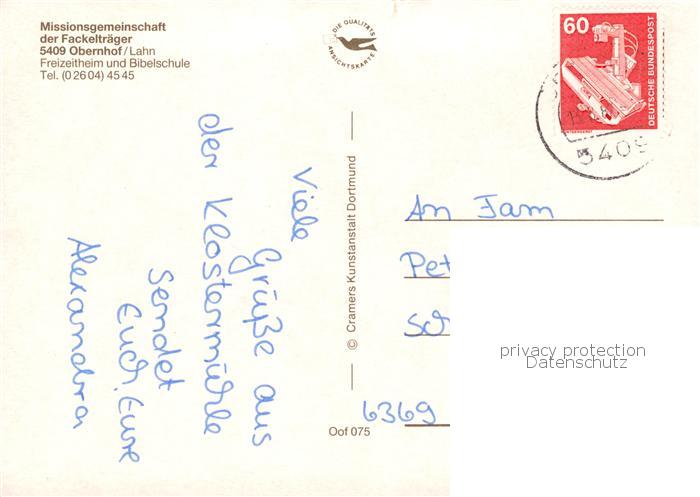 Missionsgemeinschaft
der Fackelträger
5409 Obernhof/Lahn
Freizeitheim und Bibelschule
Tel. (02604) 4545
DIE QUALITÄTS
ANSICHTSKARTE
60
DEUTSCHE BUNDESPOST
RÖNTGENGERÄT
5409
Viele
Grüße aus
der Klostermühle
sendet
Euch, Eure
Alexandra
© Cramers Kunstanstalt Dortmund
Oof 075
An Fam
Pet
Sch
6369
privacy protection
Datenschutz